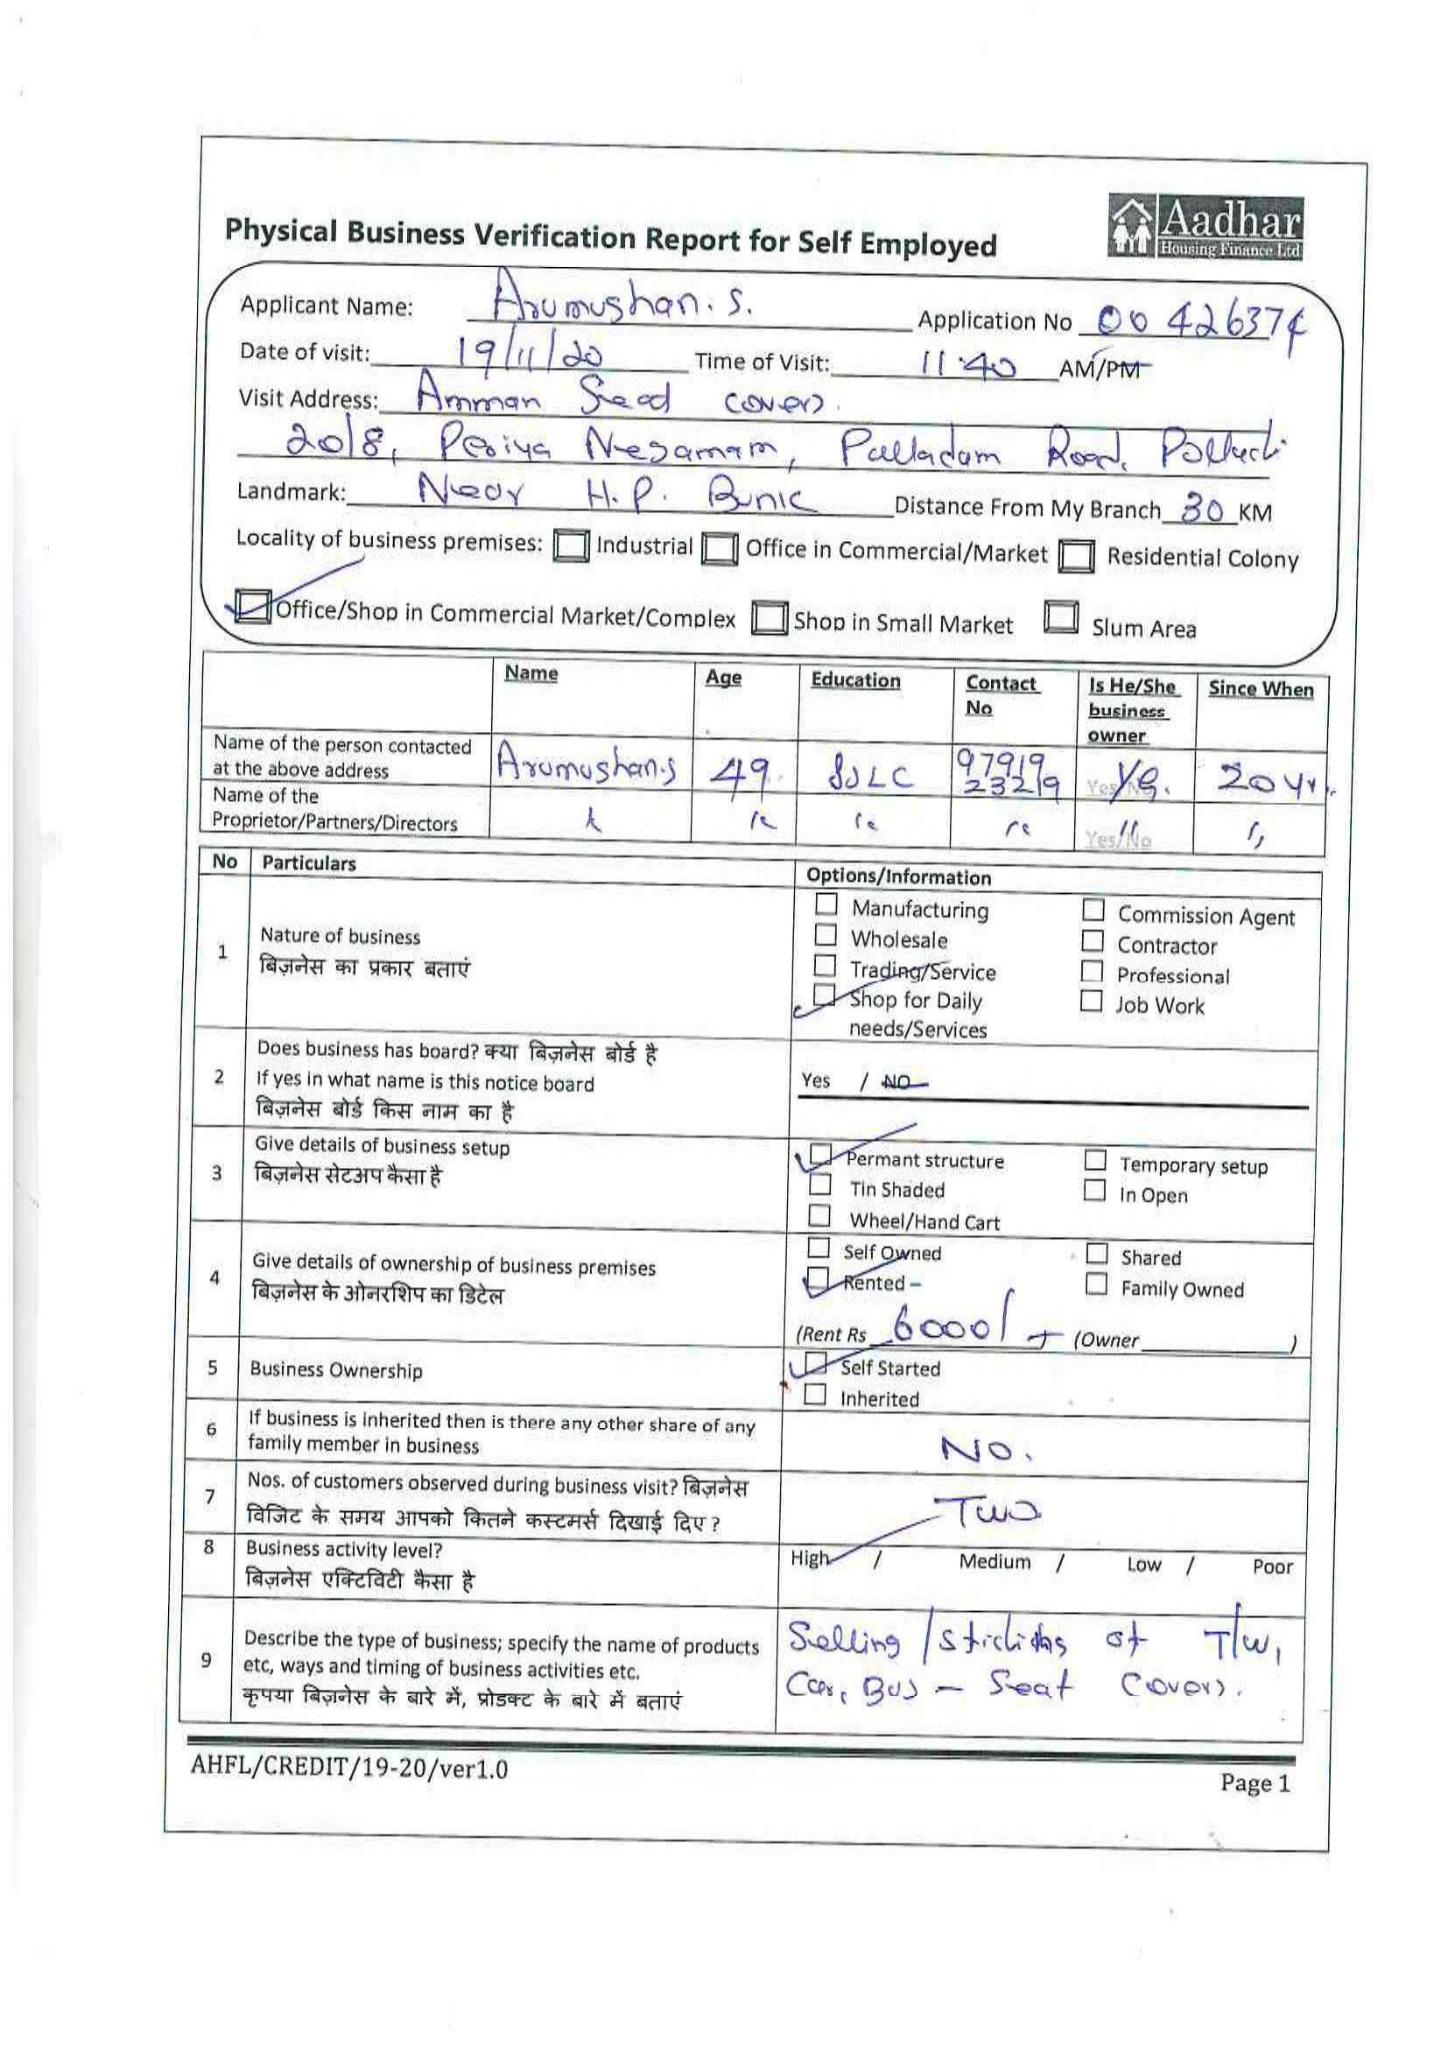 Aadhar
Housing Finance Ltd
Physical Business Verification Report for Self Employed
Applicant Name: Arumushan. S. Application No 00426374
Date of visit: 19/11/20 Time of Visit: 11.40 AM/PM
Visit Address: Amman Sead covers.
20/8, Periya Negamam, Palladam Road, Pollachi
Landmark: Near H.P. Bunk Distance From My Branch 30 KM
Locality of business premises: Industrial Office in Commercial/Market Residential Colony
Office/Shop in Commercial Market/Complex Shop in Small Market Slum Area
Name Age Education Contact No Is He/She business owner Since When
Name of the person contacted at the above address Arumushan.s 49 SSLC 97919 23219 Yes. 20 yr.
Name of the Proprietor/Partners/Directors Yes/No
No Particulars Options/Information
1 Nature of business
बिज़नेस का प्रकार बताएं
Manufacturing Commission Agent
Wholesale Contractor
Trading/Service Professional
Shop for Daily needs/Services Job Work
2 Does business has board? क्या बिज़नेस बोर्ड है
If yes in what name is this notice board
बिज़नेस बोर्ड किस नाम का है
Yes / NO
3 Give details of business setup
बिज़नेस सेटअप कैसा है
Permant structure Temporary setup
Tin Shaded In Open
Wheel/Hand Cart
4 Give details of ownership of business premises
बिज़नेस के ओनरशिप का डिटेल
Self Owned Shared
Rented – Family Owned
(Rent Rs 6000/- (Owner )
5 Business Ownership
Self Started
Inherited
6 If business is inherited then is there any other share of any
family member in business
NO.
7 Nos. of customers observed during business visit? बिज़नेस
विजिट के समय आपको कितने कस्टमर्स दिखाई दिए ?
Two
8 Business activity level?
बिज़नेस एक्टिविटी कैसा है
High / Medium / Low / Poor
9 Describe the type of business; specify the name of products
etc, ways and timing of business activities etc.
कृपया बिज़नेस के बारे में, प्रोडक्ट के बारे में बताएं
Selling / of T/W,
Car, Bus – Seat Covers.
AHFL/CREDIT/19-20/ver1.0
Page 1